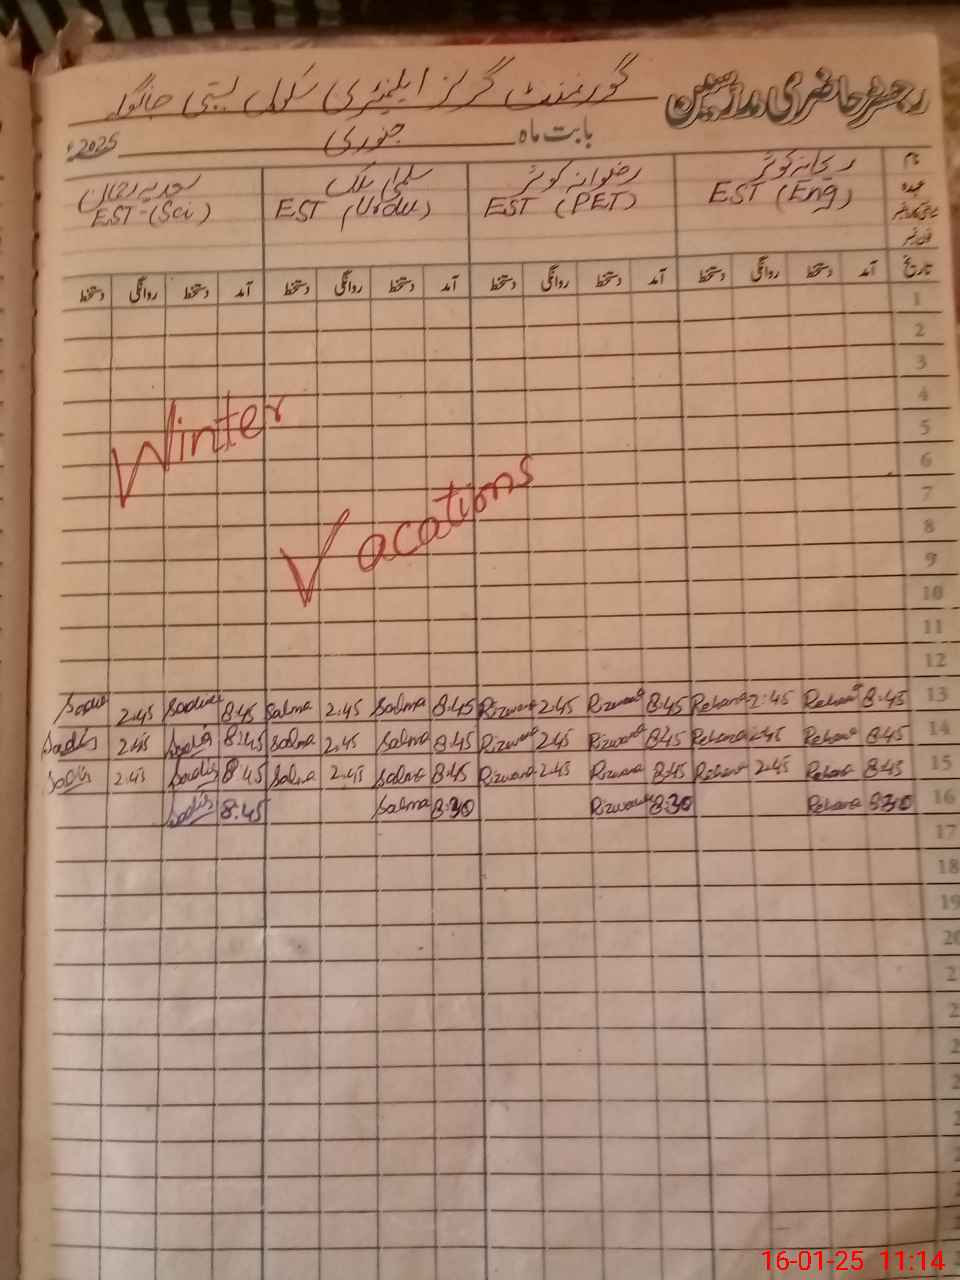 رجسٹر حاضری مدرسین گورنمنٹ گرلز ایلیمنٹری سکول بستی
بابت ماہ جنوری 2025ء
نام ریحانہ کوثر رضوانہ کوثر سلمیٰ ملک سعدیہ رحمان
عہدہ EST (Eng) EST (PET) EST (Urdu) EST-(Sci)
تاریخ آمد دستخط روانگی دستخط آمد دستخط روانگی دستخط آمد دستخط روانگی دستخط آمد دستخط روانگی دستخط
1
2
3
4
Winter
5
6
7
Vacations
8
9
10
11
12
Sadia 2:45 Sadia 8:45 Salma 2:45 Salma 8:45 Rizwana 2:45 Rizwana 8:45 Rehana 2:45 Rehana 8:45 13
Sadia 2:45 Sadia 8:45 Salma 2:45 Salma 8:45 Rizwana 2:45 Rizwana 8:45 Rehana 2:45 Rehana 8:45 14
Sadia 2:45 Sadia 8:45 Salma 2:45 Salma 8:45 Rizwana 2:45 Rizwana 8:45 Rehana 2:45 Rehana 8:45 15
Sadia 8:45 Salma 8:30 Rizwana 8:30 Rehana 8:30 16
17
18
19
20
16-01-25 11:14